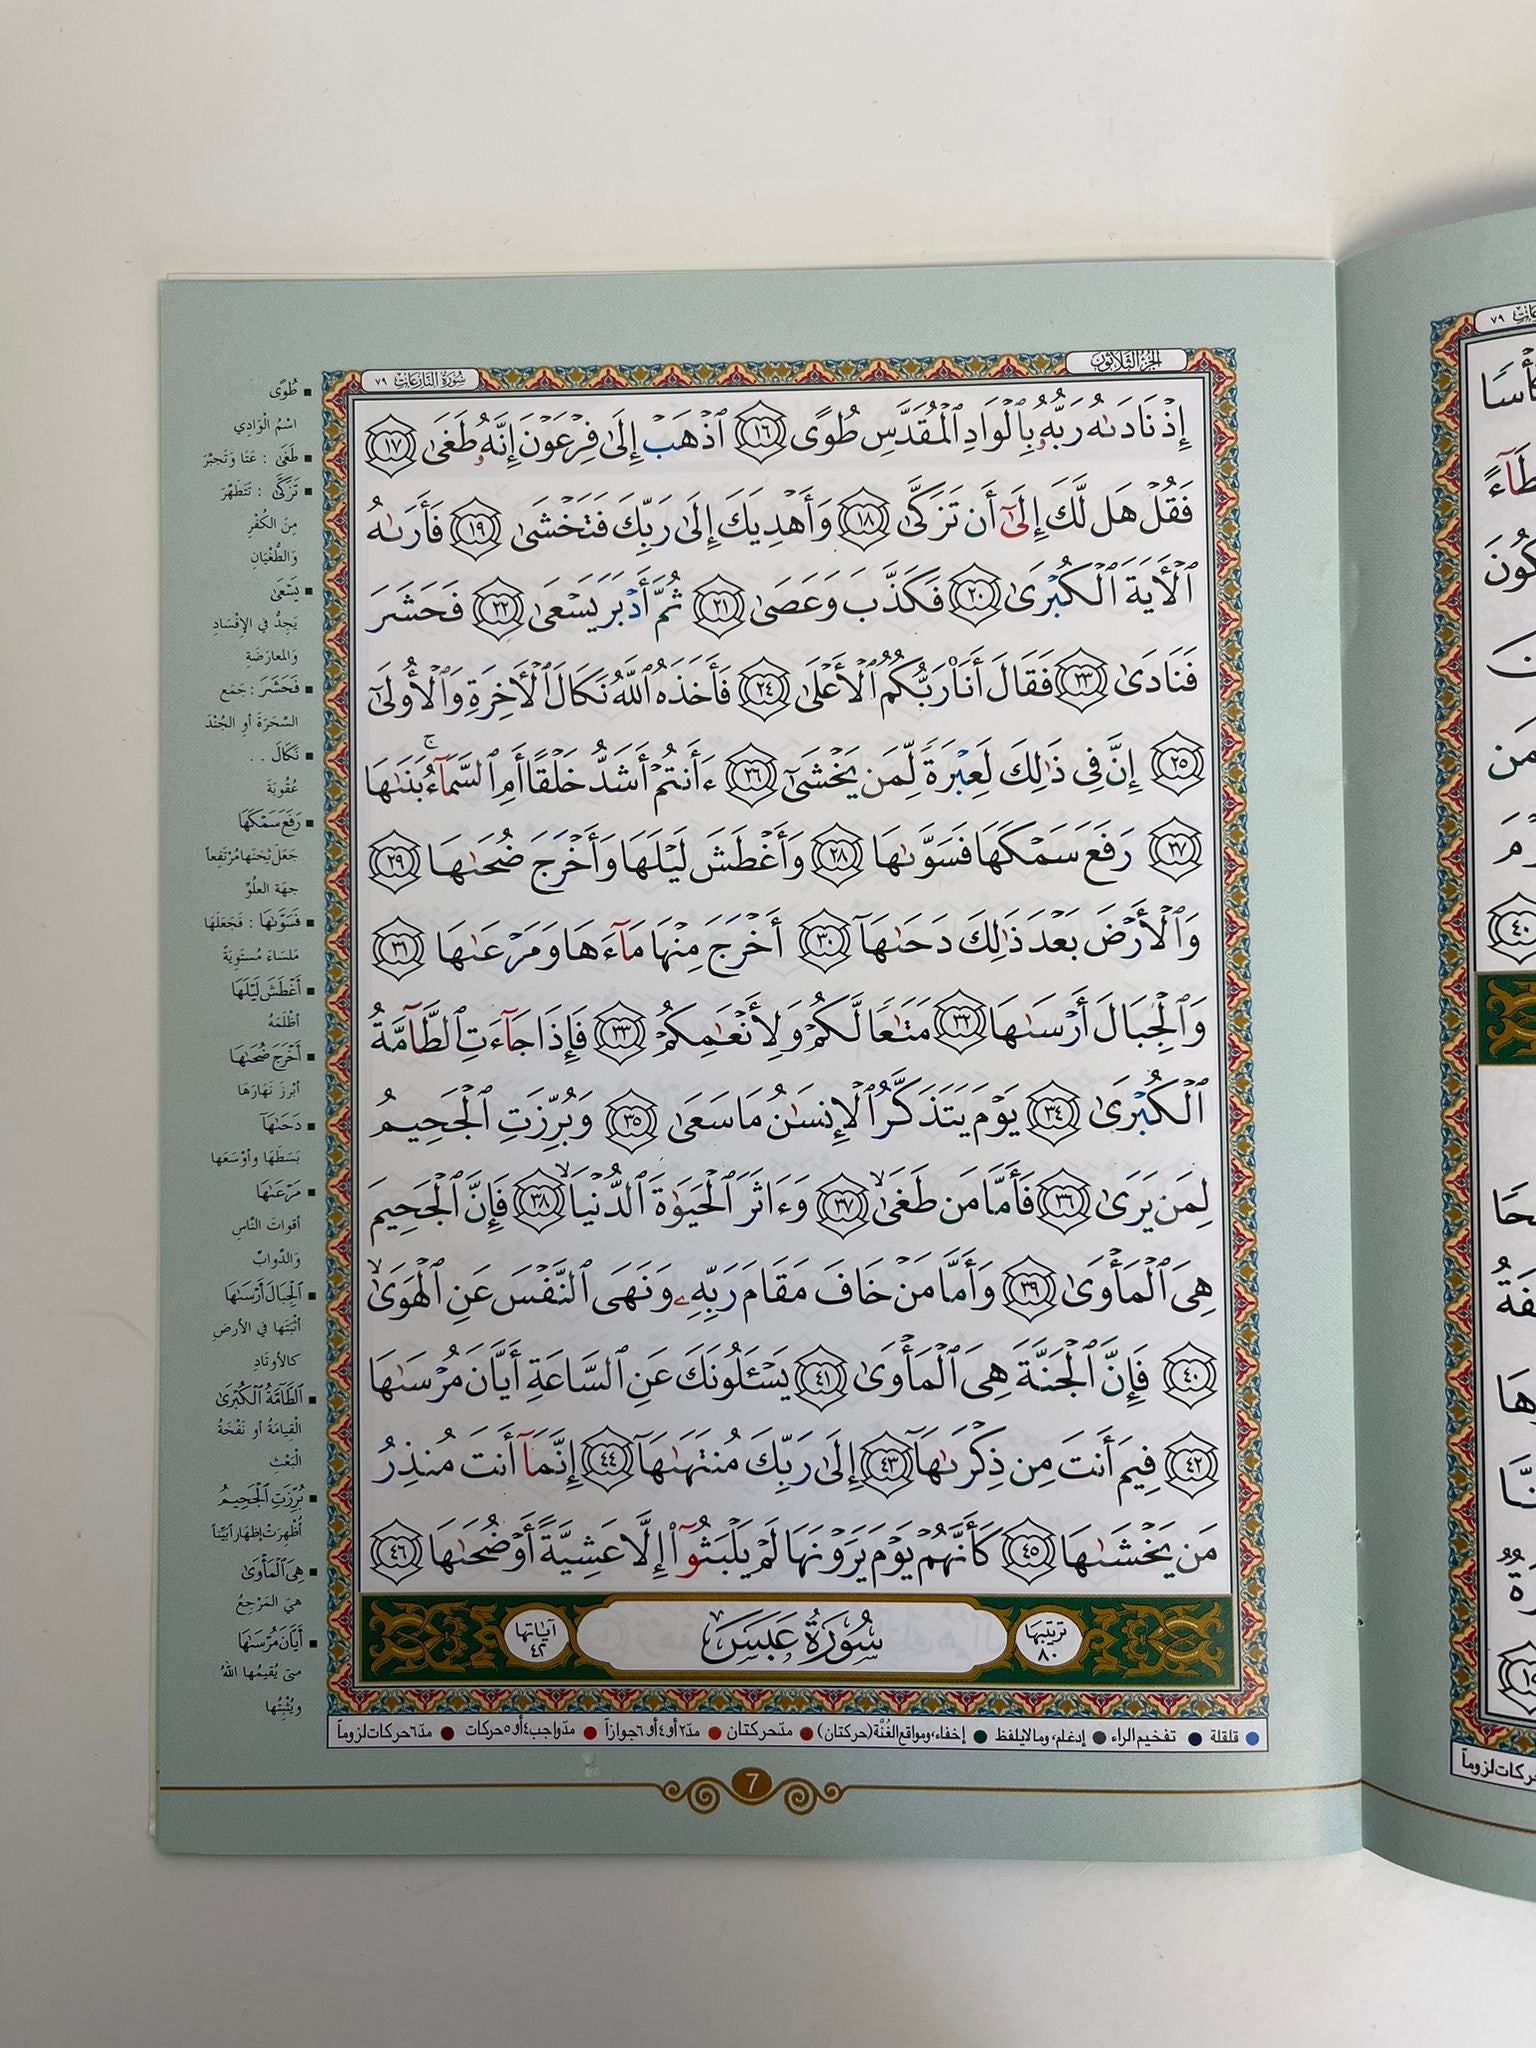 الجزء الثلاثون
سورة النازعات ٧٩
إِذْ نَادَىٰهُ رَبُّهُۥ بِٱلْوَادِ ٱلْمُقَدَّسِ طُوًى ١٦ ٱذْهَبْ إِلَىٰ فِرْعَوْنَ إِنَّهُۥ طَغَىٰ ١٧
فَقُلْ هَل لَّكَ إِلَىٰٓ أَن تَزَكَّىٰ ١٨ وَأَهْدِيَكَ إِلَىٰ رَبِّكَ فَتَخْشَىٰ ١٩ فَأَرَىٰهُ
ٱلْأَيَةَ ٱلْكُبْرَىٰ ٢٠ فَكَذَّبَ وَعَصَىٰ ٢١ ثُمَّ أَدْبَرَ يَسْعَىٰ ٢٢ فَحَشَرَ
فَنَادَىٰ ٢٣ فَقَالَ أَنَا۠ رَبُّكُمُ ٱلْأَعْلَىٰ ٢٤ فَأَخَذَهُ ٱللَّهُ نَكَالَ ٱلْأَخِرَةِ وَٱلْأُولَىٰٓ
٢٥ إِنَّ فِى ذَٰلِكَ لَعِبْرَةً لِّمَن يَخْشَىٰٓ ٢٦ ءَأَنتُمْ أَشَدُّ خَلْقًا أَمِ ٱلسَّمَآءُ ۚ بَنَىٰهَا
٢٧ رَفَعَ سَمْكَهَا فَسَوَّىٰهَا ٢٨ وَأَغْطَشَ لَيْلَهَا وَأَخْرَجَ ضُحَىٰهَا ٢٩
وَٱلْأَرْضَ بَعْدَ ذَٰلِكَ دَحَىٰهَآ ٣٠ أَخْرَجَ مِنْهَا مَآءَهَا وَمَرْعَىٰهَا ٣١
وَٱلْجِبَالَ أَرْسَىٰهَا ٣٢ مَتَٰعًا لَّكُمْ وَلِأَنْعَٰمِكُمْ ٣٣ فَإِذَا جَآءَتِ ٱلطَّآمَّةُ
ٱلْكُبْرَىٰ ٣٤ يَوْمَ يَتَذَكَّرُ ٱلْإِنسَٰنُ مَا سَعَىٰ ٣٥ وَبُرِّزَتِ ٱلْجَحِيمُ
لِمَن يَرَىٰ ٣٦ فَأَمَّا مَن طَغَىٰ ۙ ٣٧ وَءَاثَرَ ٱلْحَيَوٰةَ ٱلدُّنْيَا ۙ ٣٨ فَإِنَّ ٱلْجَحِيمَ
هِىَ ٱلْمَأْوَىٰ ٣٩ وَأَمَّا مَنْ خَافَ مَقَامَ رَبِّهِۦ وَنَهَى ٱلنَّفْسَ عَنِ ٱلْهَوَىٰ ۙ
٤٠ فَإِنَّ ٱلْجَنَّةَ هِىَ ٱلْمَأْوَىٰ ٤١ يَسْـَٔلُونَكَ عَنِ ٱلسَّاعَةِ أَيَّانَ مُرْسَىٰهَا
٤٢ فِيمَ أَنتَ مِن ذِكْرَىٰهَآ ٤٣ إِلَىٰ رَبِّكَ مُنتَهَىٰهَآ ٤٤ إِنَّمَآ أَنتَ مُنذِرُ
مَن يَخْشَىٰهَا ٤٥ كَأَنَّهُمْ يَوْمَ يَرَوْنَهَا لَمْ يَلْبَثُوٓا۟ إِلَّا عَشِيَّةً أَوْ ضُحَىٰهَا ٤٦
ترتيبها ٨٠
سُورَةُ عَبَسَ
آياتها ٤٢
قلقلة
تفخيم الراء
إدغام، وما لا يلفظ
إخفاء، ومواقع الغُنَّة (حركتان)
مدّ حركتان
مدّ ٢ أو ٤ أو ٦ جوازاً
مدّ واجب ٤ أو ٥ حركات
مدّ ٦ حركات لزوماً
7
■ طُوًى
اسْمُ الْوَادِي
■ طَغَىٰ : عَتَا وَتَجبّرَ
■ تَزَكَّىٰ : تَتَطَهّرَ
مِنَ الكُفْرِ
وَالطُّغْيَانِ
■ يَسْعَىٰ
يَجِدُّ في الإفْسَادِ
وَالمعارَضَةِ
■ فَحَشَرَ : جَمَع
السّحَرَةَ أوِ الجُنْدَ
■ نَكَالَ . .
عُقُوبَة
■ رَفَعَ سَمْكَهَا
جَعَلَ ثِخنَها مُرْتَفعاً
جهَة العلُوِّ
■ فَسَوَّىٰهَا : فَجَعَلَهَا
مَلسَاءَ مُستَوِيَةً
■ أَغْطَشَ لَيْلَهَا
أظْلَمَهُ
■ أَخْرَجَ ضُحَىٰهَا
أبْرزَ نَهَارَهَا
■ دَحَىٰهَآ
بَسَطَهَا وأوْسَعَها
■ مَرْعَىٰهَا
أقواتَ النّاسِ
وَالدّوابّ
■ ٱلْجِبَالَ أَرْسَىٰهَا
أثْبَتَها في الأرضِ
كالأوتَادِ
■ ٱلطَّآمَّةُ ٱلْكُبْرَىٰ
الْقِيامَةُ أو نَفْخَةُ
الْبَعْثِ
■ بُرِّزَتِ ٱلْجَحِيمُ
أُظْهِرَتْ إظهَاراً بَيِّناً
■ هِىَ ٱلْمَأْوَىٰ
هيَ المَرْجِعُ
■ أَيَّانَ مُرْسَىٰهَا
متى يُقيمُها اللهُ
ويُثْبِتُها